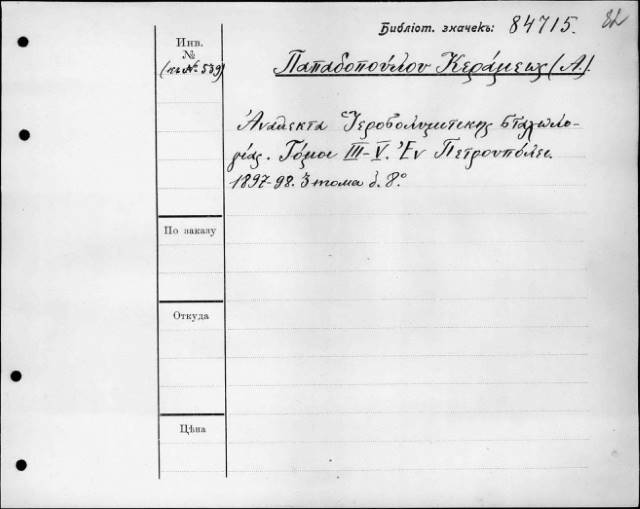 Библіот. значекъ: 84715. 82
Инв.
№
(къ № 539)
Παπαδοπούλου Κεράμεως (Α.).
Ἀνάλεκτα Ἱεροσολυμιτικῆς σταχυολο-
γίας. Τόμοι III–V. Ἐν Πετρουπόλει.
1897-98. 3 тома б. 8°
По заказу
Откуда
Цѣна